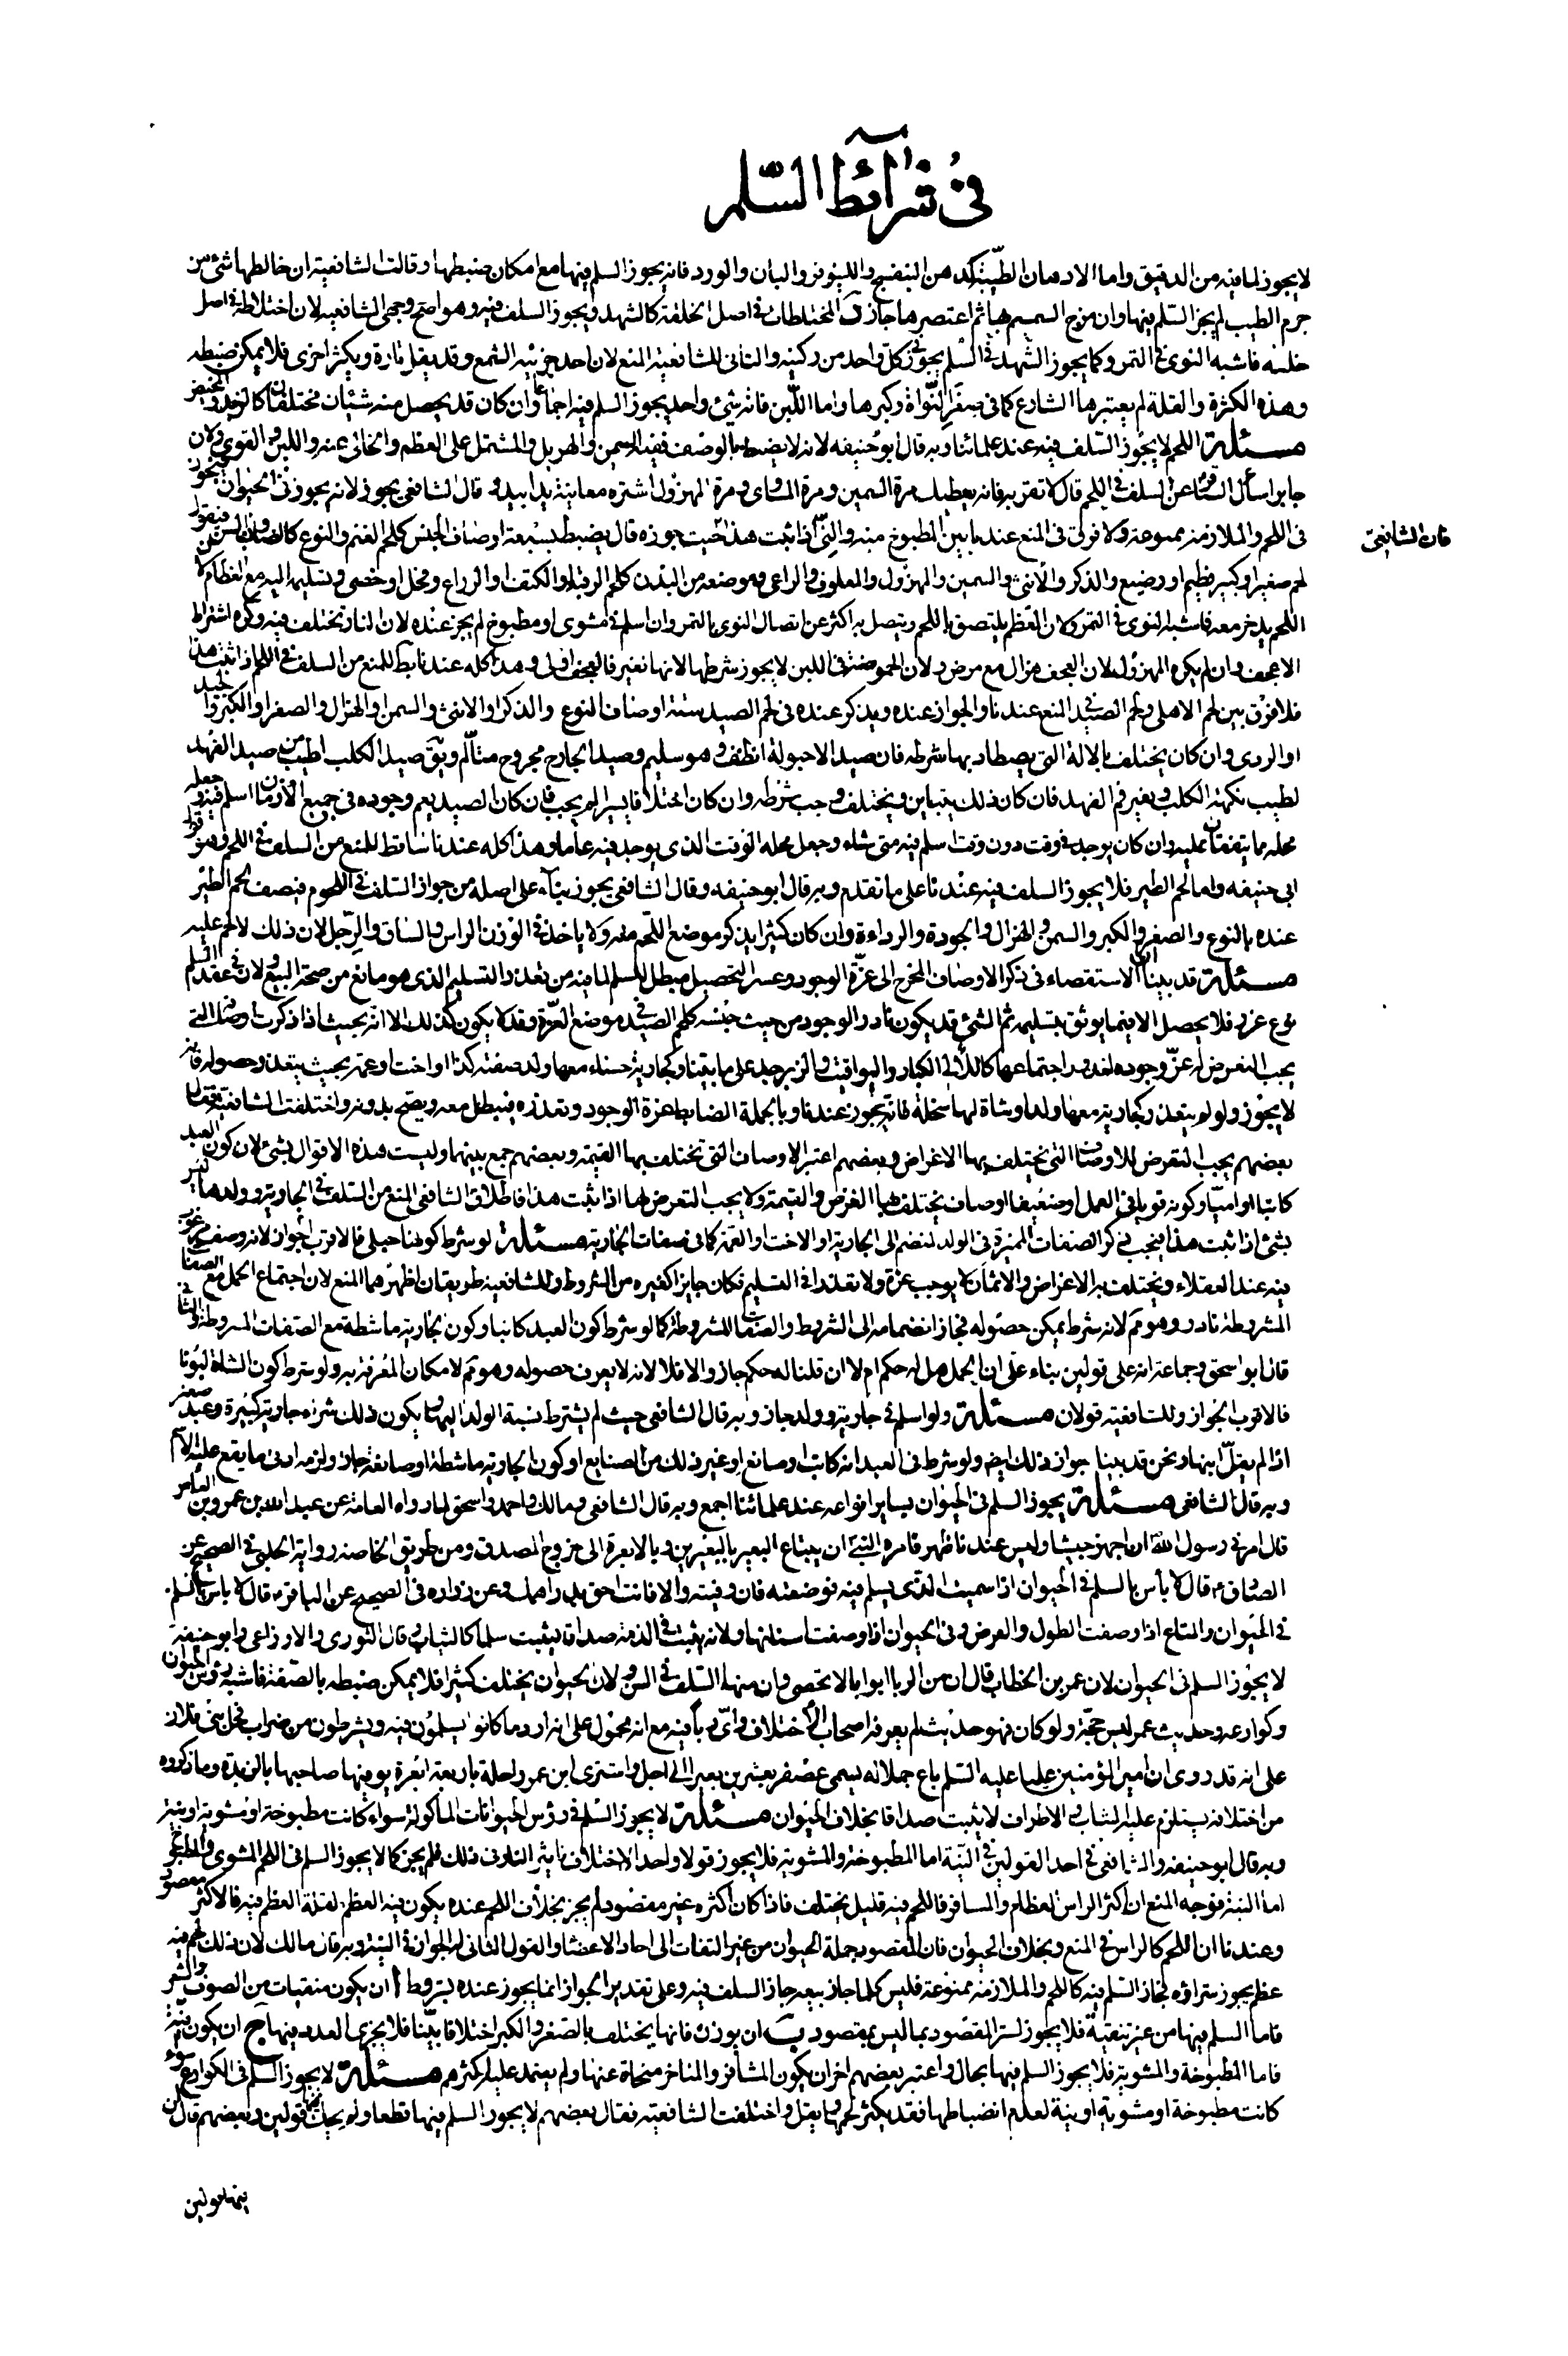 في شرائط السلم
لا يجوز لما فيه من الدقيق واما الادهان الطيبة كدهن البنفسج واللينوفر والبان والورد فانه يجوز السلم فيها مع امكان ضبطها وقالت الشافعية ان خالطها شئ من
جرم الطيب لم يجز السلم فيها وان مزج السمسم بها ثم اعتصرها جاز المختلطات في اصل الخلقة كالشهد ويجوز السلف فيه وهو اصح وجهي الشافعية لان اختلاطه في اصل
خلقته فاشبه النوى في التمر وكما يجوز الشهد في السلم يجوز في كل واحد من ركنيه والثاني للشافعية المنع لان احد جزئيه الشمع وقد يقل تارة ويكثر اخرى فلا يمكن ضبطه
وهذه الكثرة والقلة لم يعتبرها الشارع كما في صغر النواة وكبرها واما اللبن فانه شئ واحد يجوز السلم فيه اجماعا وان كان قد يحصل منه شيئان مختلفان كالزبد والمخيض
مسئلة اللحم لا يجوز السلف فيه عند علمائنا وبه قال ابو حنيفه لانه لا يضبط بالوصف ففيه السمين والهزيل والمشتمل على العظم والخالي عنه واللين والقوي ولان
جابرا سأل الباقر عن السلف في اللحم قال لا تقربه فانه يعطيك مرة السمين ومرة التاوي ومرة المهزول اشتره معاينة يدا بيد وقال الشافعي يجوز لانه يجوز في الحيوان فيجوز
في اللحم والملازمة ممنوعة ولا فرق في المنع عندنا بين المطبوخ منه والنئ اذا ثبت هذا حيث جوزه قال يضبط بسبعة اوصاف الجنس كلحم الغنم والنوع كالضأن والسن فيقول
قال الشافعي
لحم صغير او كبير فطيم او رضيع والذكر والانثى والسمين والمهزول والمعلوف والراعي وموضعه من البدن كلحم الرقبة والكتف او الذراع وفحل او خصي وتسليمه اليه مع العظام لان
اللحم يدخر معه فاشبه النوى في التمر ولان العظم يلتصق باللحم ويتصل به اكثر من اتصال النوى بالتمر وان اسلم في مشوي او مطبوخ لم يجز عنده لان النار تختلف فيه وكره اشتراط
الاعجف وان لم يكره المهزول لان العجف هزال مع مرض ولان الحموضة في اللبن لا يجوز شرطها لانها تغير فالعجف اولى وهذا كله عندنا ساقط للمنع من السلف في اللحم اذا ثبت هذا
فلا فرق بين لحم الاهلي ولحم الصيد في المنع عندنا والجواز عنده ويذكر عنده في لحم الصيد ستة اوصاف النوع والذكر او الانثى والسمن او الهزال والصغر او الكبر والجيد
او الردي وان كان يختلف بالالة التي يصطاد بها شرطه فان صيد الاحبولة انظف وهو سليم وصيد الجارح مجروح متألم وبق صيد الكلب اطيب من صيد الفهد
لطيب نكهة الكلب وتغير فم الفهد فان كان ذلك يتباين ويختلف وجب شرطه وان كان اختلافا يسيرا لم يجب فان كان الصيد يعم وجوده في جميع الازمان اسلم فيه وجعله
محله مما يتفقان عليه وان كان يوجد في وقت دون وقت اسلم فيه متى شاء وجعل محله الوقت الذي يوجد فيه عاما وهذا كله عندنا ساقط للمنع من السلف في اللحم وهو قول
ابي حنيفه واما لحم الطير فلا يجوز السلف فيه عندنا على ما تقدم وبه قال ابو حنيفه وقال الشافعي يجوز بناء على اصله من جواز السلف في اللحوم فيصف لحم الطير
عنده بالنوع والصغر والكبر والسمن والهزال والجودة والرداءة وان كان كثيرا يذكر موضع اللحم منه ولا ياخذ في الوزن الراس والساق والرجل لان ذلك لا لحم عليه
مسئلة قد بينا ان الاستقصاء في ذكر الاوصاف المخرج الى عزة الوجود وعسر التحصيل مبطل للسلم لما فيه من تعذر التسليم الذي هو مانع من صحة البيع ولان في عقد السلم
نوع غرر فلا يحصل الا فيما يوثق بتسليمه ثم الشئ قد يكون نادر الوجود من حيث جنسه كلحم الصيد في موضع العزة وقد لا يكون كذلك الا انه بحيث اذا ذكرت اوصافه التي
يجب التعرض لها عز وجوده لندور اجتماعها كاللآلي الكبار واليواقيت والزبرجد على ما بينا وكجارية حسناء معها ولد صفته كذا او اخت او عمة بحيث يتعذر حصوله فانه
لا يجوز ولو لم يتعذر كجارية معها ولد او شاة لها سخلة فانه يجوز عندنا وبالجملة الضابط عزة الوجود وتعذره فيبطل معه ويصح بدونه واختلفت الشافعية فقال
بعضهم يجب التعرض للاوصاف التي تختلف بها الاغراض وبعضهم اعتبر الاوصاف التي تختلف بها القيمة وبعضهم جمع بينهما وليست هذه الاقوال بشئ لان كون العبد
كاتبا او اميا وكونه قويا في العمل او ضعيفا اوصاف يختلف بها الغرض والقيمة ولا يجب التعرض لها اذا ثبت هذا فاطلاق الشافعي المنع من السلف في الجارية وولدها ليس
بشئ اذا ثبت هذا فيجب ذكر الصفات المميزة في الولد المنضم الى الجارية او الاخت او العمة كما في صفات الجارية مسئلة لو شرط كونها حبلى فالاقرب الجواز لانه وصف مرغوب
فيه عند العقلاء ويختلف به الاغراض والاثمان لا يوجب عزة ولا تعذرا في التسليم فكان جايزا كغيره من الشروط وللشافعية طريقان اظهرهما المنع لان اجتماع الحمل مع الصفات
المشروطة نادر وهو مم لانه شرط يمكن حصوله فجاز انضمامه الى الشروط والصفات المشروطة كما لو شرط كون العبد كاتبا وكون الجارية ماشطة مع الصفات المشروطة والثاني
قال ابو اسحق وجماعة انه على قولين بناء على ان الحمل هل له حكم ام لا ان قلنا له حكم جاز والا فلا لانه لا يعرف حصوله وهو مم لامكان المعرفة به ولو شرط كون الشاة لبونا
فالاقرب الجواز وللشافعية قولان مسئلة ولو اسلم في جارية وولد جاز وبه قال الشافعي حيث لم يشترط نسبة الولد اليها ويكون ذلك شراء جارية كبيرة وعبد صغير
اذا لم يقل ابنها ونحن قد بينا جواز ذلك ايضا ولو شرط في العبد انه كاتب او صانع او غير ذلك من الصنايع او كون الجارية ماشطة او صانعة جاز ولزمه ادنى ما يقع عليه الاسم
وبه قال الشافعي مسئلة يجوز السلم في الحيوان بساير انواعه عند علمائنا اجمع وبه قال الشافعي ومالك واحمد واسحق لما رواه العامة عن عبد الله بن عمرو بن العاص
قال امرني رسول الله ان اجهز جيشا وليس عندنا ظهر فامره النبي ان يبتاع البعير بالبعيرين وبالابعرة الى خروج المصدق ومن طريق الخاصة رواية الحلبي في الصحيح عن
الصادق قال لا بأس بالسلم في الحيوان اذا سميت الذي يسلم فيه فوصفته فان وفيته والا فانت احق بدراهمك وعن زراره في الصحيح عن الباقر قال لا باس بالسلم
في الحيوان والمتاع اذا وصفت الطول والعرض وفي الحيوان اذا وصفت اسنانها ولانه يثبت في الذمة صداقا فيثبت سلما كالثياب وقال الثوري والاوزاعي وابو حنيفة
لا يجوز السلم في الحيوان لان عمر بن الخطاب قال ان من الربا ابوابا لا تخفى وان منها السلف في السن ولان الحيوان يختلف كثيرا فلا يمكن ضبطه بالصفة فاشبه رؤس الحيوان
وكوارعه وحديث عمر ليس حجة ولو كان فهو حديث لم يعرفه اصحاب الاختلاف واي ربا فيه مع انه محمول على انه اراد ما كانوا يسلمون فيه ويشرطون من ضراب فحل بني فلان
على انه قد روى ان امير المؤمنين عليا عليه السلم باع جملا له يسمى عصفر بعشرين بعيرا الى اجل واشترى ابن عمر راحلة باربعة ابعرة يوفيها صاحبها بالربذة وما ذكروه
من اختلافه يستلزم عليه الشاب والاطراف لا يثبت صداقا بخلاف الحيوان مسئلة لا يجوز السلم في رؤس الحيوانات المأكولة سواء كانت مطبوخة او مشوية او نية
وبه قال ابو حنيفه والشافعي في احد القولين في النية اما المطبوخة والمشوية فلا يجوز قولا واحدا لاختلاف تاثير النار في ذلك فلم يجز كما لا يجوز السلم في اللحم المشوي والمطبوخ
اما النية فوجه المنع ان اكثر الراس العظام والمشافر فاللحم فيه قليل يختلف فاذا كان اكثره غير مقصود لم يجز بخلاف اللحم عنده يكون فيه العظم لقلة العظم فيه فالاكثر مقصود
وعندنا ان اللحم كالراس في المنع وبخلاف الحيوان فان المقصود جملة الحيوان من غير التفات الى احاد الاعضاء والقول الثاني له الجواز في النية وبه قال مالك لان ذلك لحم فيه
عظم يجوز شراؤه فجاز السلم فيه كاللحم والملازمة ممنوعة فليس كلما جاز بيعه جاز السلف فيه وعلى تقدير الجواز انما يجوز عنده بشروط أ ان يكون منقيات من الصوف والشعر
فاما السلم فيها من غير تنقية فلا يجوز لستر المقصود بما ليس بمقصود ب ان يوزن فانها يختلف بالصغر والكبر اختلافا بينا فلا يجزي العدد فيها ج ان يكون نية
فاما المطبوخة والمشوية فلا يجوز السلم فيها بحال واعتبر بعضهم اخر ان يكون المشافر والمناخر منحاة عنها ولم يعتمد عليه اكثرهم مسئلة لا يجوز السلم في الكوارع سواء
كانت مطبوخة او مشوية او نية لعدم انضباطها فقد يكثر لحمها ويقل واختلفت الشافعية فقال بعضهم لا يجوز السلم فيها قطعا ولم يحك فيها قولين وبعضهم قال ان
فيها قولين